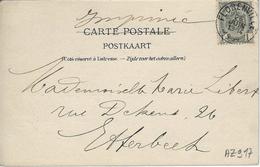 Imprimé
CARTE POSTALE
POSTKAART
(Côté réservé à l'adresse. — Zijde voor het adres alleen.)
Mademoiselle Marie Libert
rue Dekens, 26
Etterbeek
AZ917